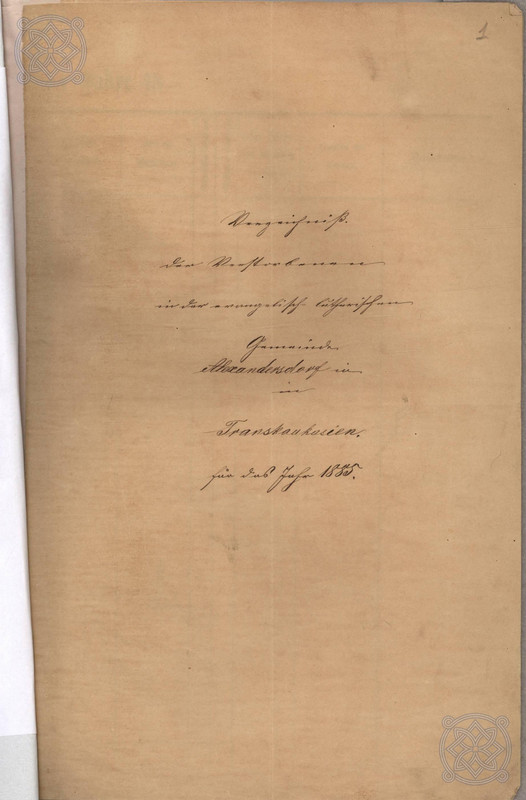 1
Verzeichniß.
der Verstorbenen
in der evangelisch-lutherischen
Gemeinde
Alexandersdorf in
in
Transkaukasien.
für das Jahr 1885.